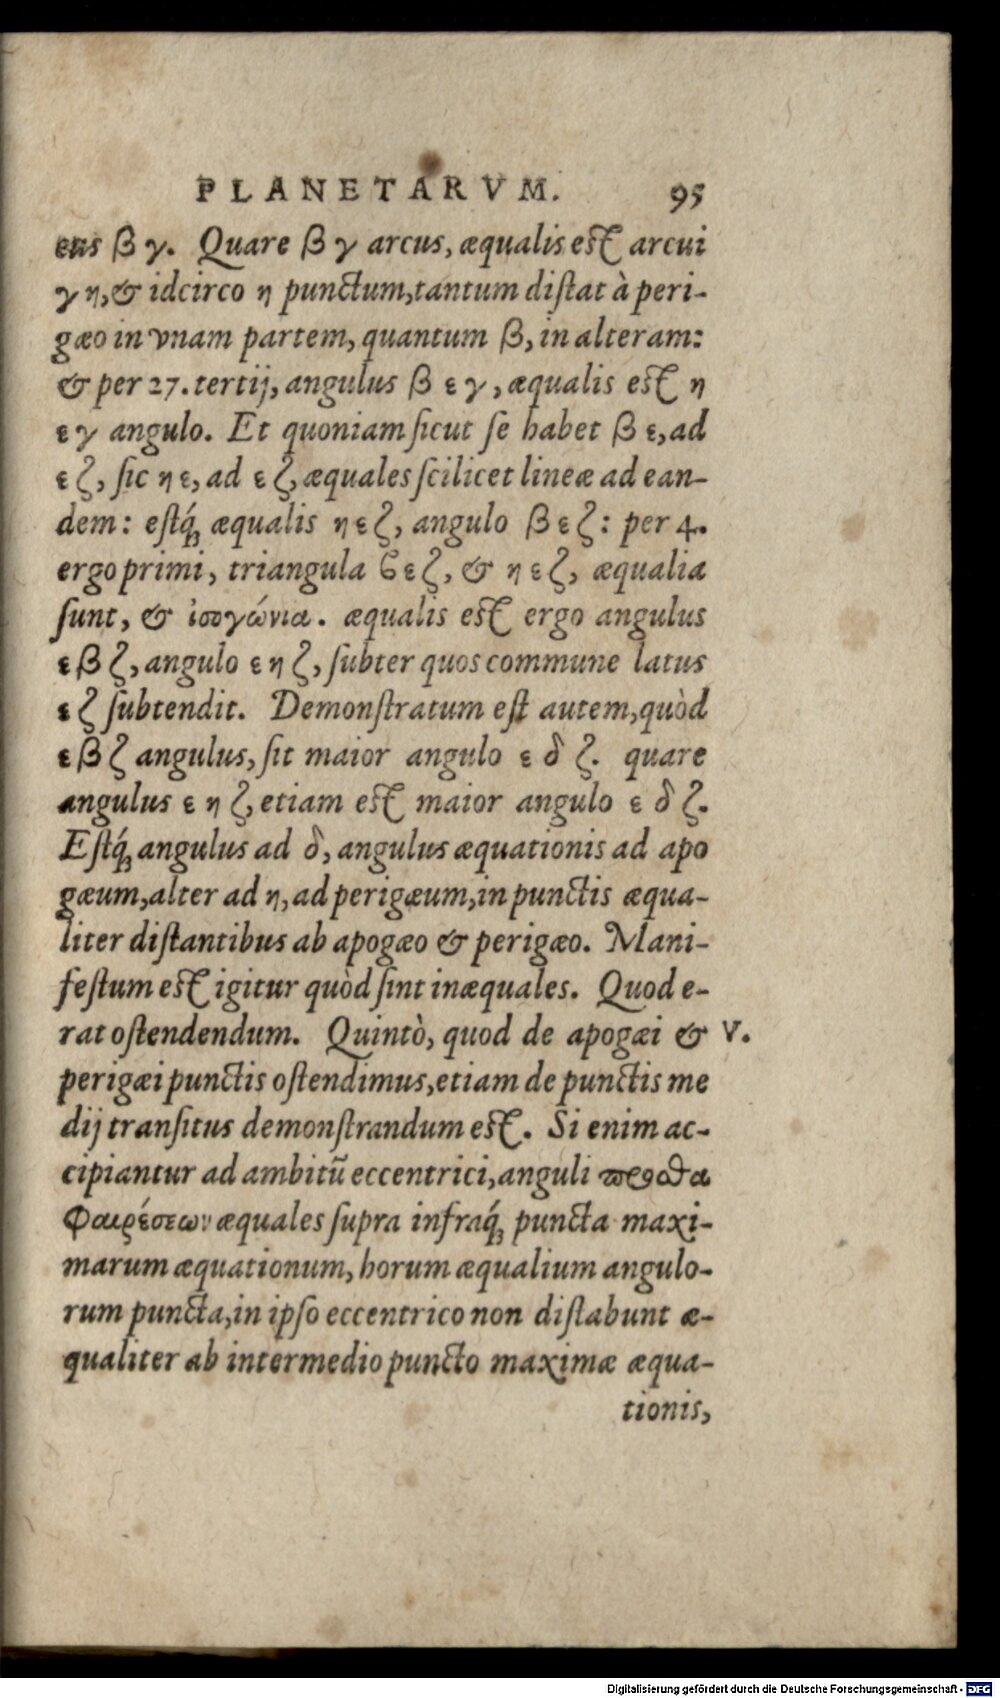 PLANETARVM. 95
eus β γ. Quare β γ arcus, æqualis est arcui
γ η, & idcirco η punctum, tantum distat à peri-
gæo in vnam partem, quantum β, in alteram:
& per 27. tertij, angulus β ε γ, æqualis est η
ε γ angulo. Et quoniam sicut se habet β ε, ad
ε ζ, sic η ε, ad ε ζ, æquales scilicet lineæ ad ean-
dem: estq́ꝫ æqualis η ε ζ, angulo β ε ζ: per 4.
ergo primi, triangula ϐ ε ζ, & η ε ζ, æqualia
sunt, & ἰσογώνια. æqualis est ergo angulus
ε β ζ, angulo ε η ζ, subter quos commune latus
ε ζ subtendit. Demonstratum est autem, quòd
ε β ζ angulus, sit maior angulo ε δ ζ. quare
angulus ε η ζ, etiam est maior angulo ε δ ζ.
Estq́ꝫ angulus ad δ, angulus æquationis ad apo
gæum, alter ad η, ad perigæum, in punctis æqua-
liter distantibus ab apogæo & perigæo. Mani-
festum est igitur quòd sint inæquales. Quod e-
rat ostendendum. Quintò, quod de apogæi & V.
perigæi punctis ostendimus, etiam de punctis me
dij transitus demonstrandum est. Si enim ac-
cipiantur ad ambitū eccentrici, anguli προσθα
φαιρέσεων æquales supra infraq́ꝫ puncta maxi-
marum æquationum, horum æqualium angulo-
rum puncta, in ipso eccentrico non distabunt æ-
qualiter ab intermedio puncto maximæ æqua-
tionis,
Digitalisierung gefördert durch die Deutsche Forschungsgemeinschaft - DFG